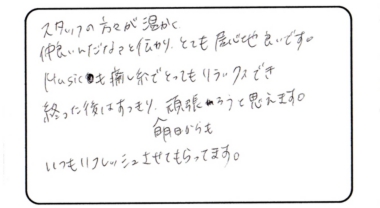 スタッフの方々が温かく
仲良いんだなぁと伝わり、とても居心地良いです。
Musicも癒し系でとってもリラックスでき
終った後はすっきり、頑張ろうと思えます。
明日からも
いつもリフレッシュさせてもらってます。